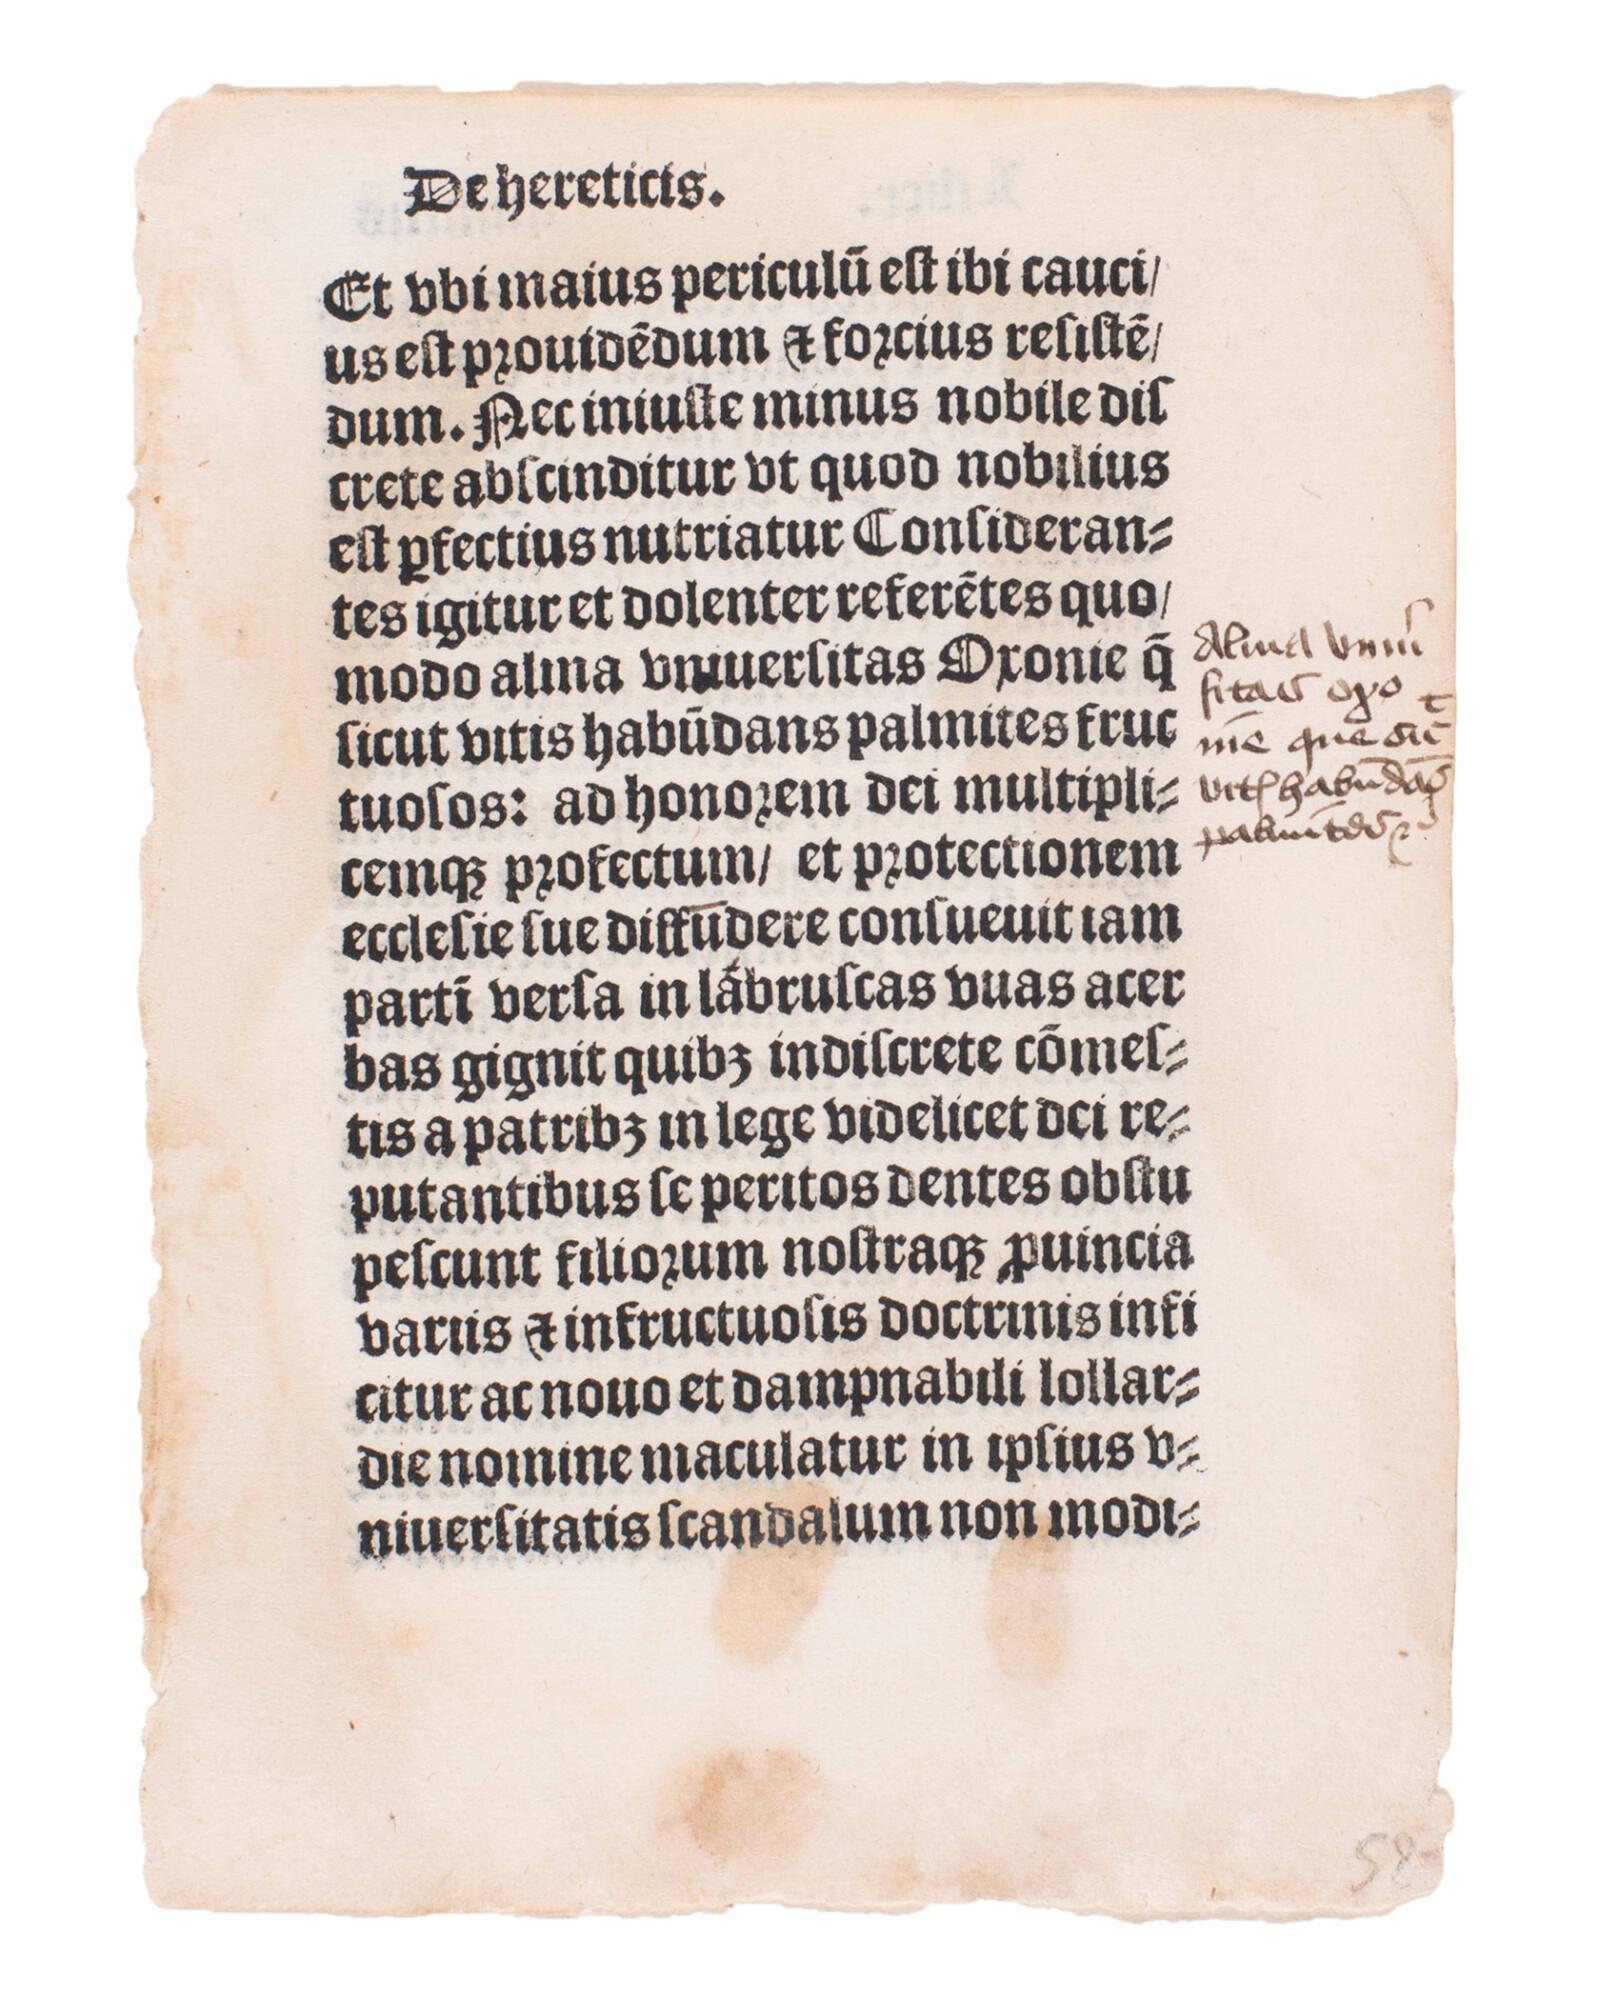 De hereticis.
Et vbi maius periculū eſt ibi cauci/
us eſt pꝛouidēdum ⁊ foꝛcius reſiſtē/
dum. Nec iniuſte minus nobile diſ
crete abſcinditur vt quod nobilius
eſt ꝑfectius nutriatur Conſideran⸗
tes igitur et dolenter referētes quo/
modo alma vniuerſitas Oxonie q̄
ſicut vitis habūdans palmites fruc
tuoſos: ad honoꝛem dei multipli⸗
cemqꝫ pꝛofectum/ et pꝛotectionem
eccleſie ſue diffūdere conſueuit iam
partī verſa in lābruſcas vuas acer
bas gignit quibꝫ indiſcrete cōmeſ⸗
tis a patribꝫ in lege videlicet dei re⸗
putantibus ſe peritos dentes obſtu
peſcunt filioꝛum noſtraqꝫ ꝓuincia
variis ⁊ infructuoſis doctrinis infi
citur ac nouo et dampnabili lollar⸗
die nomine maculatur in ipſius v⸗
niuerſitatis ſcandalum non modi⸗
Alma
ſitas oxo
nie que
habūdās
58